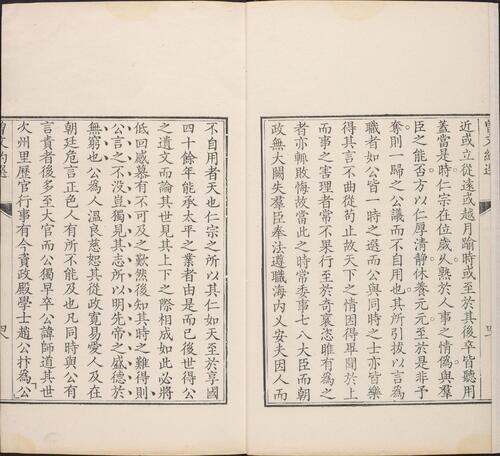 近或立從遠或越月踰時或至於其後卒皆聽用
蓋當是時仁宗在位歲久熟於人事之情偽與羣
臣之能否方以仁厚清靜休養元元至於是非予
奪則一歸之公議而不自用也其所引拔以言為
職者如公皆一時之選而公與同時之士亦皆樂
得其言不曲從苟止故天下之情因得畢聞於上
而事之害理者常不果行至於奇衺恣睢有為之
者亦輒敗悔故當此之時常委事七八大臣而朝
政無大闕失羣臣奉法遵職海内乂安夫因人而
不自用者天也仁宗之所以其仁如天至於享國
四十餘年能承太平之業者由是而已後世得公
之遺文而論其世見其上下之際相成如此必將
低回感慕有不可及之歎然後知其時之難得則
公言之不没豈獨見其志所以明先帝之盛德於
無窮也公為人溫良慈恕其從政寬易愛人及在
朝廷危言正色人有所不能及也凡同時與公有
言責者後多至大官而公獨早卒公諱師道其世
次州里歷官行事有今資政殿學士趙公抃為公